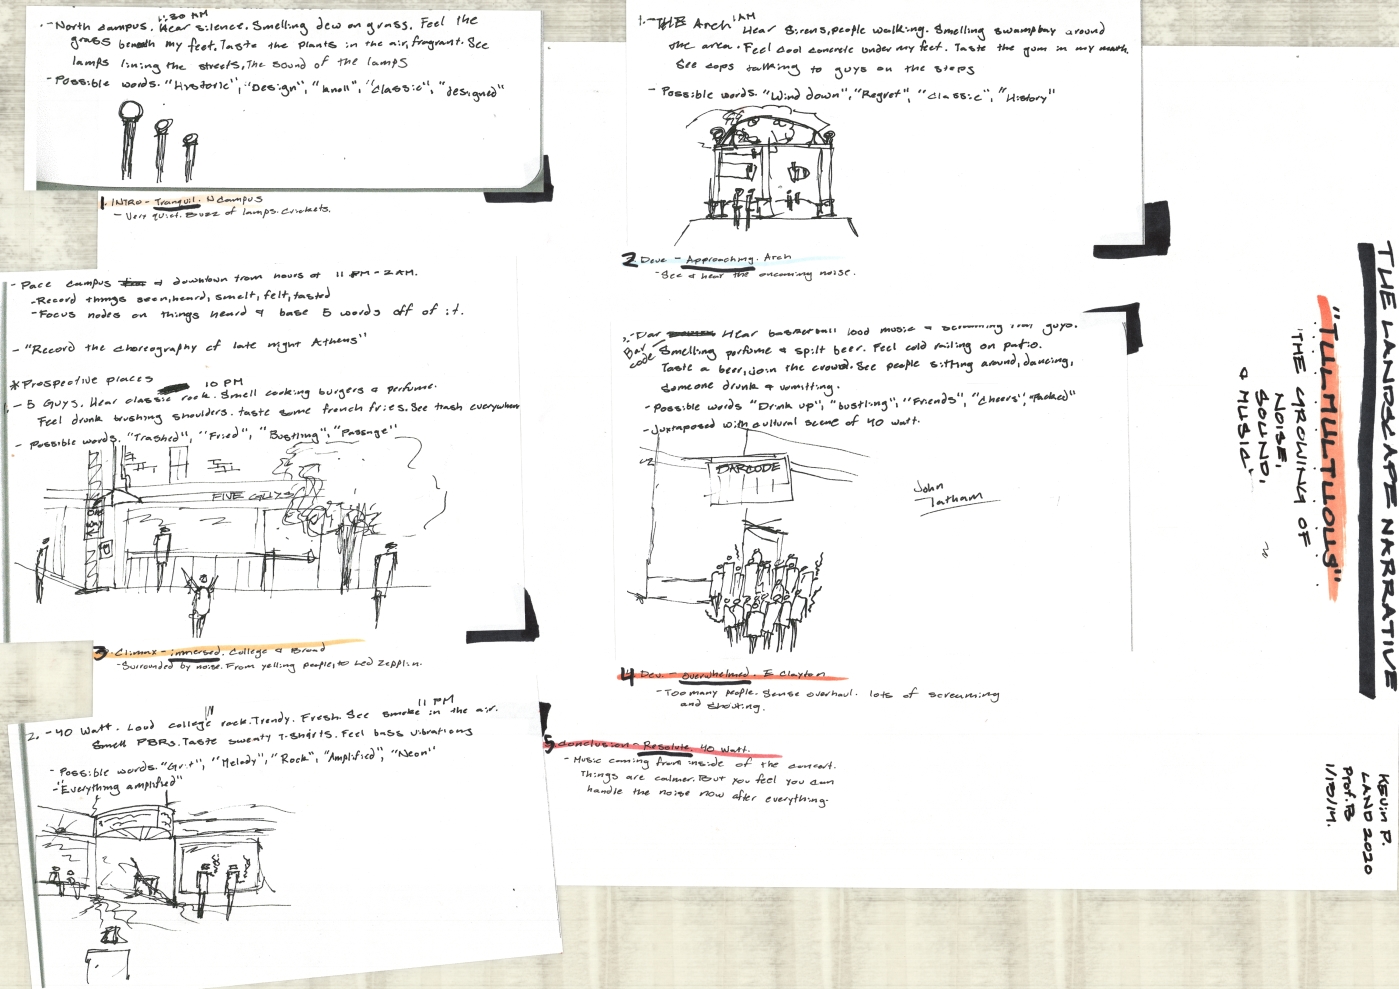 1:30 AM
- North campus. Hear silence. Smelling dew on grass. Feel the
grass beneath my feet. Taste the plants in the air, fragrant. See
lamps lining the streets, The sound of the lamps
- Possible words. "Historic", "Design", "knoll", "Classic", "designed"
1. INTRO - Tranquil. N Campus
- Very quiet. Buzz of lamps. Crickets.
- Pace campus & downtown from hours of 11 PM - 2 AM.
- Record things seen, heard, smelt, felt, tasted
- Focus nodes on things heard & base 5 words off of it.
- "Record the choreography of late night Athens"
* Prospective places
10 PM
1. - 5 Guys. Hear classic rock. Smell cooking burgers & perfume.
Feel drunk brushing shoulders. taste some french fries. See trash everywhere
- Possible words. "Trashed", "Fried", "Bustling", "Passage"
FIVE GUYS
ONE WAY
3. Climax - immersed. College & Broad
- Surrounded by noise. From yelling people, to Led Zepplin.
11 PM
2. - 40 Watt. Loud college rock. Trendy. Fresh. See smoke in the air.
Smell PBRs. Taste sweaty T-shirts. Feel bass vibrations
- Possible words. "Grit", "Melody", "Rock", "Amplified", "Neon"
- "Everything amplified"
1. - THE Arch 1 AM Hear Sirens, people walking. Smelling swampbay around
the area. Feel cool concrete under my feet. Taste the gum in my mouth.
See cops talking to guys on the steps
- Possible words. "Wind down", "Regret", "Classic", "History"
2 Deve - Approaching. Arch
- See & hear the oncoming noise.
Bar code
Hear basketball loud music & screaming frat guys.
Smelling perfume & spilt beer. Feel cold railing on patio.
Taste a beer, join the crowd. See people sitting around, dancing,
someone drunk & vomitting.
- Possible words "Drink up", "bustling", "Friends", "Cheers", "Packed"
- Juxtaposed with cultural scene of 40 watt.
BARCODE
John
Tatham
4 Dev. - overwhelmed. E Clayton
- Too many people. Sense overhaul. lots of screaming
and shouting.
5 Conclusion - Resolute 40 Watt.
- Music coming from inside of the concert.
Things are calmer. But you feel you can
handle the noise now after everything.
THE LANDSCAPE NARRATIVE
"TULMULTUOUS"
"THE GROWING OF
NOISE,
SOUND,
& MUSIC"
Kevin P.
LAND 2020
Prof. B